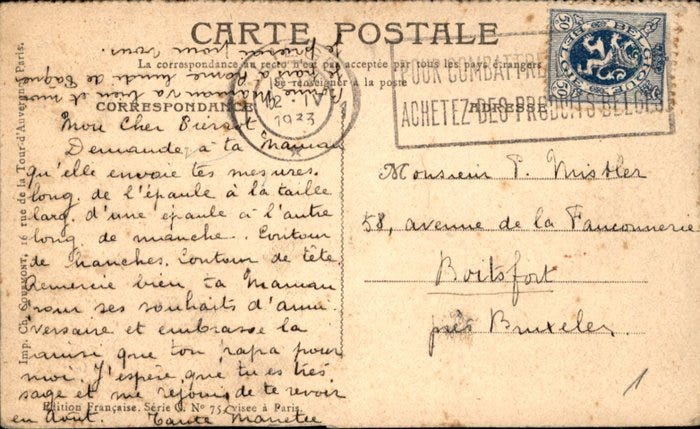 CARTE POSTALE
La correspondance au recto n'est pas acceptée par tous les pays étrangers
Se renseigner à la poste
CORRESPONDANCE
ADRESSE
1923
POUR COMBATTRE
ACHETEZ DES PRODUITS BELGES
50 BELGIQUE 50
BELGIE
Mon Cher Pierrot
Demande à ta Maman
qu'elle envoie tes mesures.
long. de l'épaule à la taille
larg. d'une épaule à l'autre
long. de manche. Contour
de hanches. Contour de tête.
Remercie bien ta Maman
pour ses souhaits d'anni
versaire et embrasse la
ainsi que ton papa pour
moi. J'espère que tu es très
sage et me réjouis de te revoir
en Août. Tante
Monsieur P. Mistler
58, avenue de la Fauconnerie
Boitsfort
près Bruxelles.
1
je pense pour vous.
Maman va bien et moi
lundi de Pâques
Imp. Ch. COURMONT, 16 rue de la Tour-d'Auvergne, Paris.
Edition Française. Série N° 75, visée à Paris.